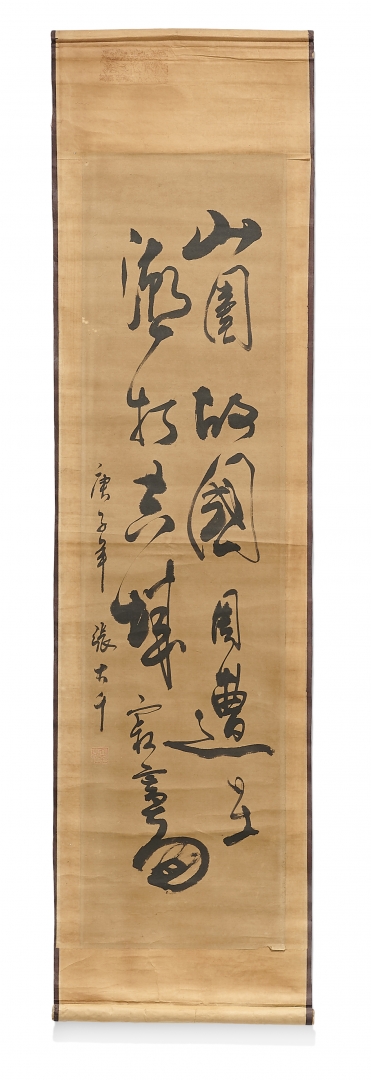 山圍故國周遭在
潮打空城寂寞回
庚子年 張大千